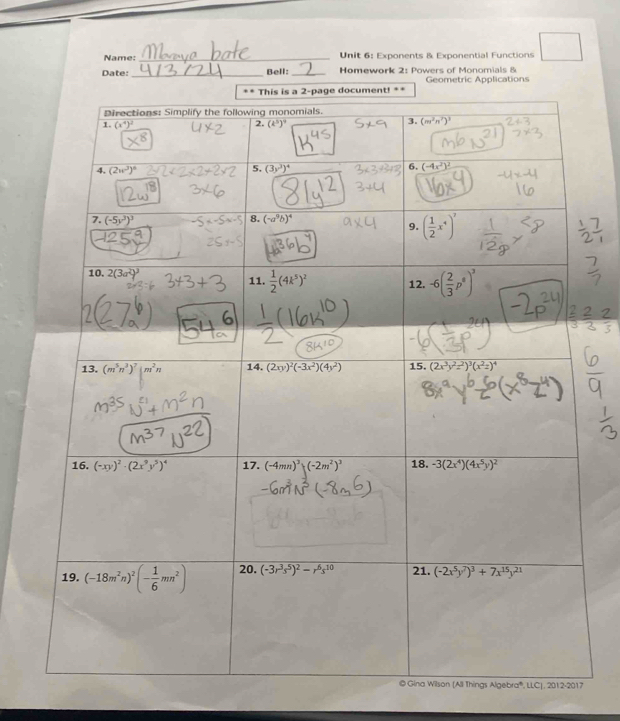 Name: bate Unit 6: Exponents & Exponential Functions
Date: 4/3/24 Bell: 2 Homework 2: Powers of Monomials &
Geometric Applications
** This is a 2-page document! **
Directions: Simplify the following monomials.
1. (x⁴)² 4x2
x⁸
2. (k⁵)⁹ 5x9
k⁴⁵
3. (m²n⁷)³ 2x3
7x3
m⁶ N²¹
4. (2w³)⁶ 2x2x2x2x2x2
12w¹⁸ 3x6
5. (3y³)⁴
81y¹² 3+4
6. (-4x²)² -4x-4
16x⁴ 16
7. (-5y³)³ -5x-5x-5
-125 25x-5
8. (-a⁹b)⁴ 9x4
b⁴
9. (1/2 x⁴)⁷
10. 2(3a²)³ 3+3+3
2(27a⁶) 54a⁶
11. 1/2(4k⁵)²
1/2(16k¹⁰)
8k¹⁰
12. -6(2/3 p⁸)³
-2p²⁴
2/3 2/3 2/3
6/9
1/3
13. (m⁵n³)⁷ · m²n
m³⁵ N²¹ + m²n
m³⁷ N²²
14. (2xy)²(-3x²)(4y²)
15. (2x³y²z²)³(x²z)⁴
8x⁹y⁶z⁶(x⁸z⁴)
16. (-xy)² · (2x⁹y⁵)⁴
17. (-4mn)³ · (-2m²)³
(-8m⁶)
18. -3(2x⁴)(4x⁵y)²
19. (-18m²n)²(-1/6 mn²)
20. (-3r³s⁵)² - r⁶s¹⁰
21. (-2x⁵y⁷)³ + 7x¹⁵y²¹
© Gina Wilson (All Things Algebra®, LLC), 2012-2017